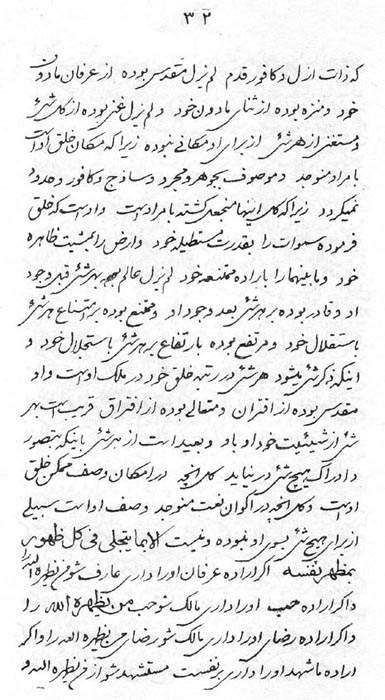 ۳۲
که ذات ازل و کافور قدم لم یزل مقدس بوده از عرفان مادون
خود و منزه بوده از ثنای مادون خود و لم یزل غنی بوده از کل شئ
و مستغنی از هر شئ از برای او مکانی نبوده زیرا که مکان خلق اوست
بامر او منوجد و موصوف بجوهر و مجرد و ساذج و کافور و حدود
نمیگردد زیرا که کل اینها منجعل گشته بامر اوست و اوست که خلق
فرموده سموات را بقدرت مستطیله خود و ارض را بمشیت ظاهره
خود و ما بینهما را باراده ممتنعه خود لم یزل عالم بوده بهر شئ قبل وجود
او و قادر بوده بر هر شئ بعد وجود او و ممتنع بوده بر امتناع هر شئ
باستقلال خود و مرتفع بوده بارتفاع بر هر شئ باستجلال خود و
اینکه ذکر شئ میشود هر شئ در رتبه خلق خود در ملک اوست و او
مقدس بوده از اقتران و متعالی بوده از افتراق قریب است بهر
شئ از شیئیت خود او باو و بعید است از هر شئ باینکه بتصور
و ادراک هیچ شئ در نیاید کل آنچه در امکان وصف ممکن خلق
اوست و کل آنچه در اکوان نعت منوجد وصف او است سبیلی
از برای هیچ شئ بسوی او نبوده و نیست الا بما یتجلی فی کل ظهور
بمظهر نفسه اگر اراده عرفان او را داری عارف شو من یظهره الله را
و اگر اراده حب او را داری مالک شو حب من یظهره الله را
و اگر اراده رضای او را داری مالک شو رضای من یظهره الله را و اگر
اراده ما شهد او را داری بر نفست مستشهد شو از من یظهره الله و